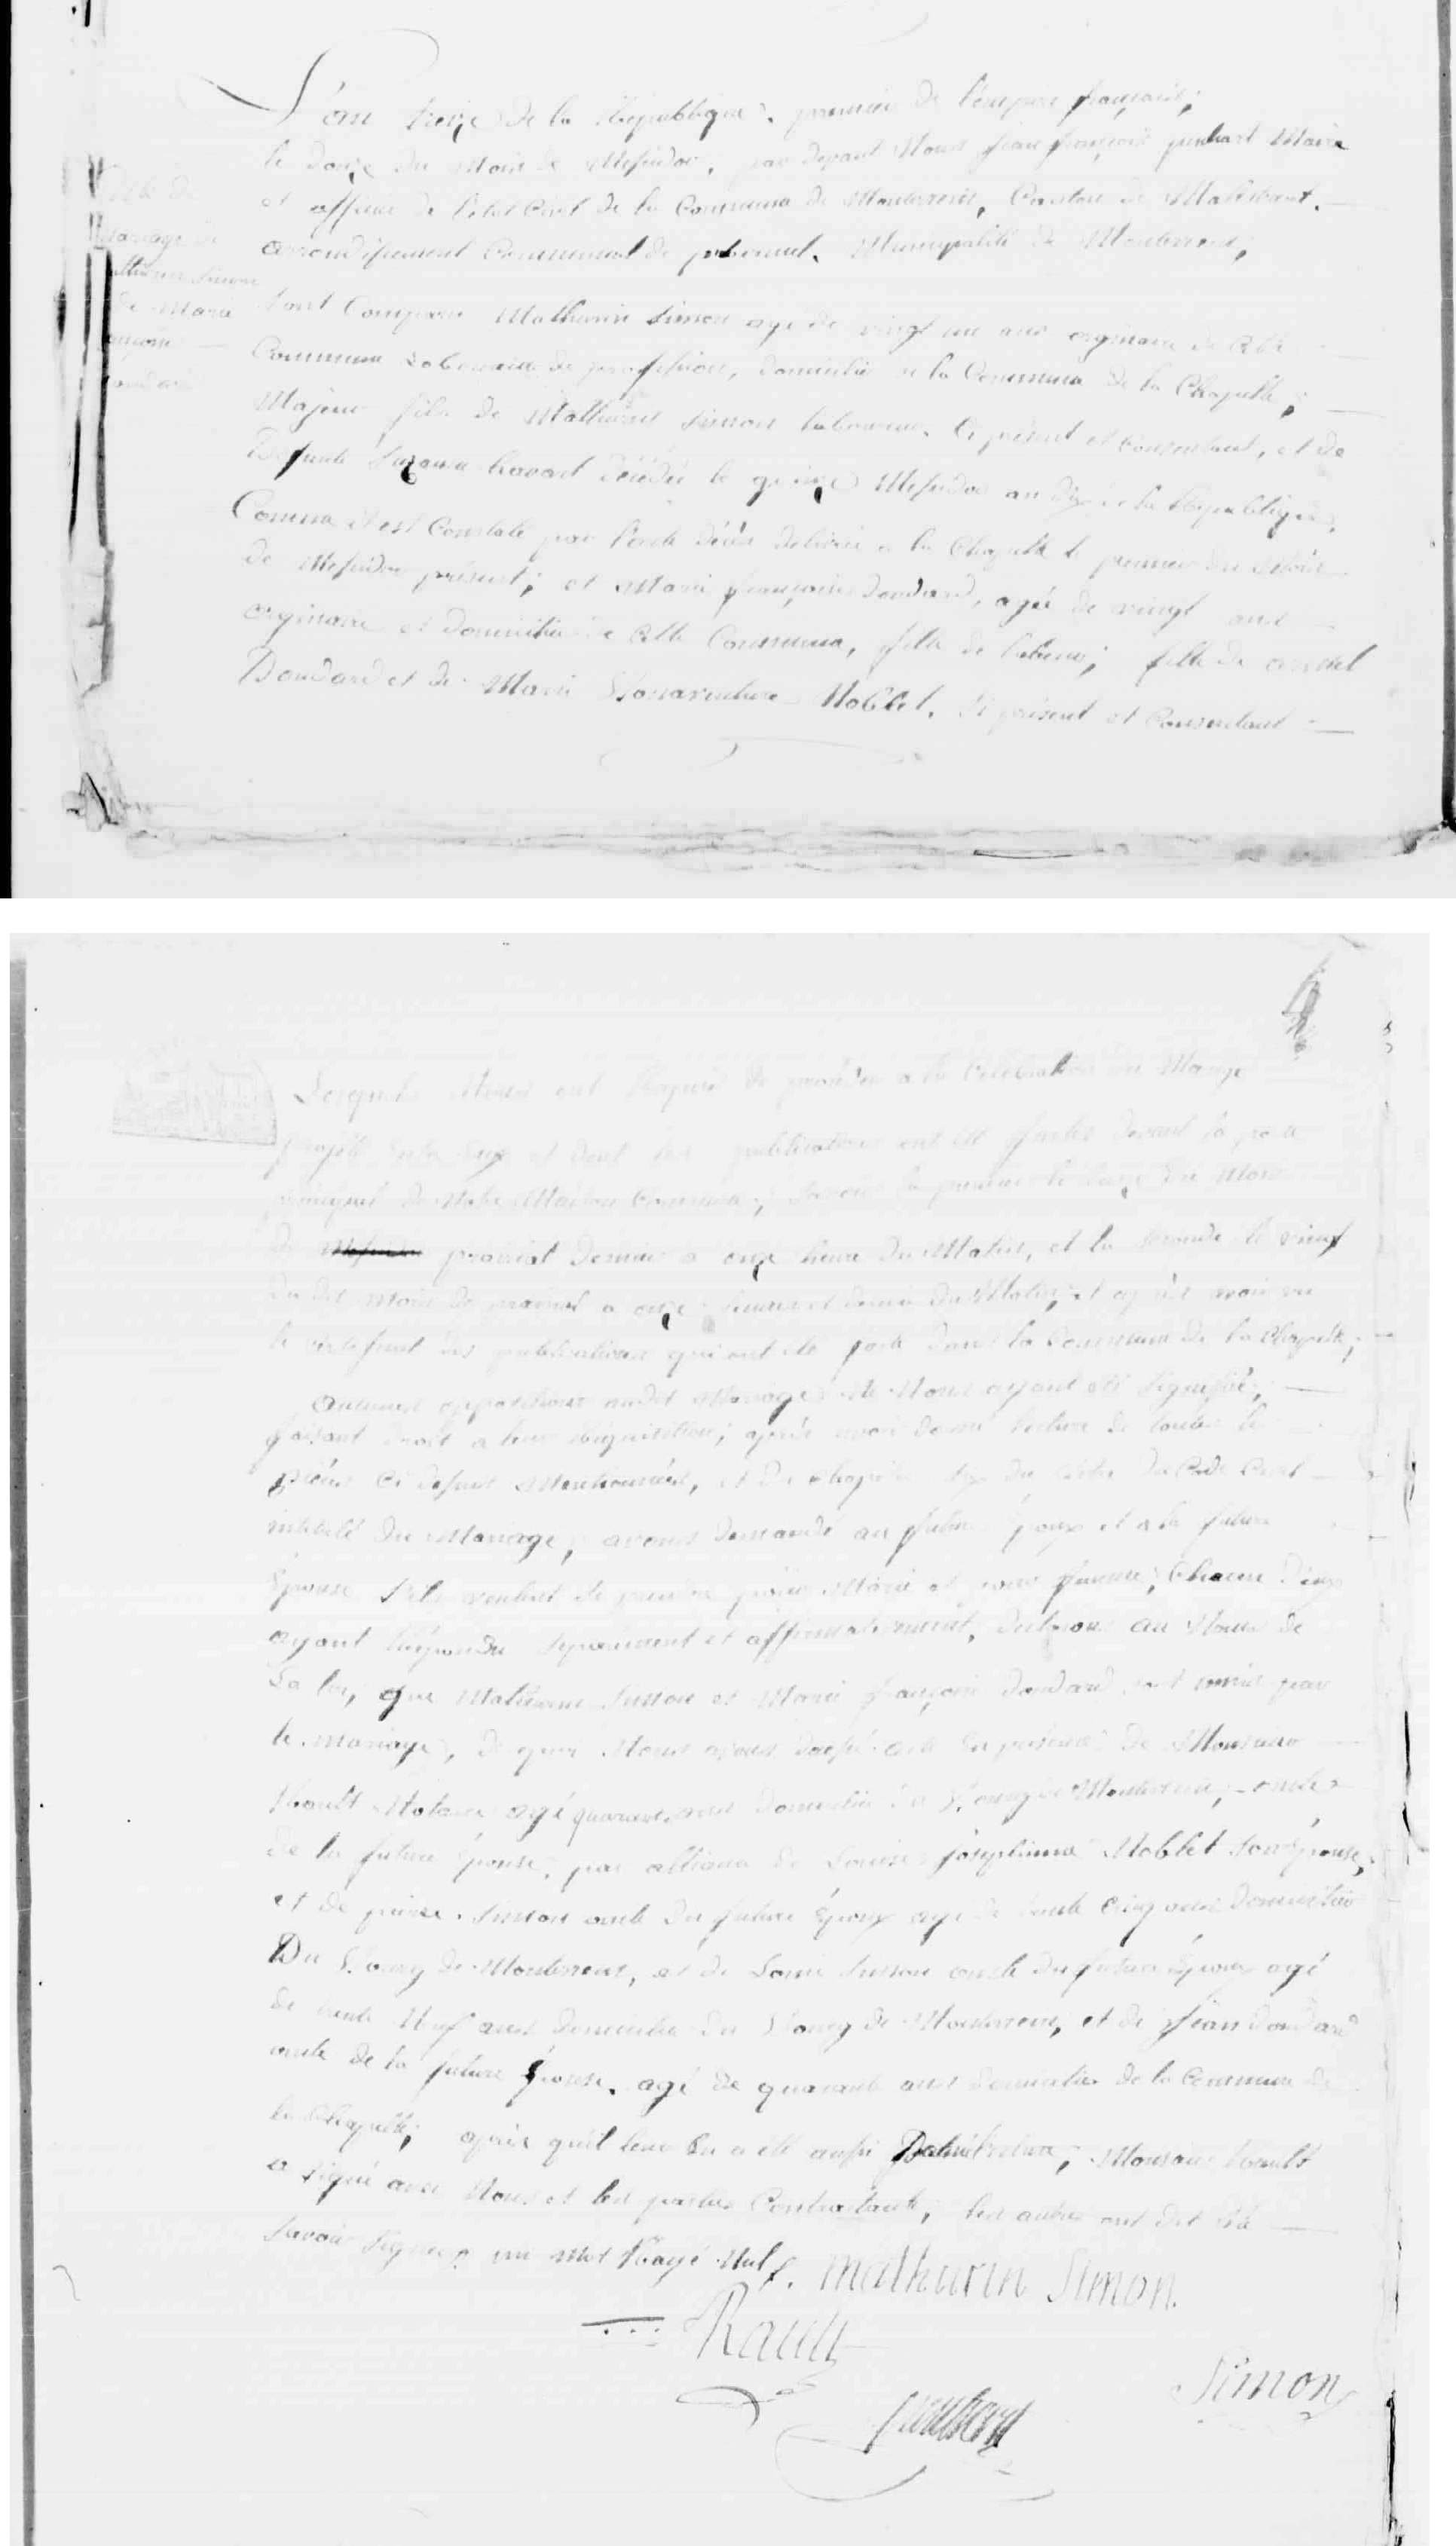 L'an treize de la Republique, premier de l'empire français,
le douze du Mois de Messidor, par devant Nous jean françois Maire
et officier de l'etat Civil de la Commune de Monterrein, Canton de Malestroit,
arrondissement Communal de ploermel, Municipalité de Monterrein,
acte de
mariage de
mathurin Simon
de Marie
françoise
doudard
Sont Comparu Mathurin Simon age de vingt un ans orginaire de Cette
Commune Laboureur de profession, domicilié a la Commune de la Chapelle;
Majeur fils de Mathurin Simon laboureur, Ci présent et Consentant, et de
Defunte Suzanne décédée le quinze Messidor an dix de la Republique,
Comme il est Constaté par l'acte décès délivré a la Chapelle le premier du Mois
de Messidor présent; et Marie françoise doudard, agée de vingt ans
orginaire et domicilié de Cette Commune, fille de labeur; fille de armel
Doudard et de Marie Bonaventure Noblet, Ci présent et Consentant
4
Lesquels Nous ont Requis de procéder a la Célébration du Mariage
projeté entr'Eux et dont les publications ont été faites devant la porte
principal de Notre Maison Commune; Savoir la premiere le du Mois
de Messidor prairial dernier a onze heure du Matin, et la seconde le vingt
du dit mois de prairial a onze heures et demie du Matin, et après avoir vu
le certificat des publications qui ont été faite dans la Commune de la Chapelle;
aucunes oppositions audit Mariage Ne Nous ayant été Signifiée;
faisant droit a leur Réquisition; après avoir donné lecture de toutes les
pièces Ci dessus Mentionnées, et du chapitre Six du titre du Code Civil
intitulé du Mariage, avons demandé au futur époux et a la future
Epouse S'ils veulent se prendre pour Mari et pour femme; Chacun d'eux
ayant Répondu séparément et affirmativement, declarons au Nom de
La loi, que Mathurin Simon et Marie françoise doudard sont unis par
le mariage, de quoi Nous avons dressé acte en présence de Monsieur
Rault Notaire agé quarante ans domicilié du Bourg de Monterrein, oncle
de la future épouse, par alliance de Louise joséphinne Noblet son épouse,
et de pierre Simon oncle du futur Epoux age de trente Cinq ans domicilié
Du Bourg de Monterrein, et de Louis Simon oncle du futur Epoux agé
de trente Neuf ans domicilié du Bourg de Monterrein, et de Jean doudard
oncle de la future Epouse, agé de quarante ans domicilié de la Commune de
la Chapelle; après qu'il leur En a été aussi Donné lecture, Monsieur Rault
a signé avec Nous et les parties Contractante, les autres ont dit Ne
Savoir Signer, un Mot Rayé Nul. mathurin Simon.
Rault
Simon